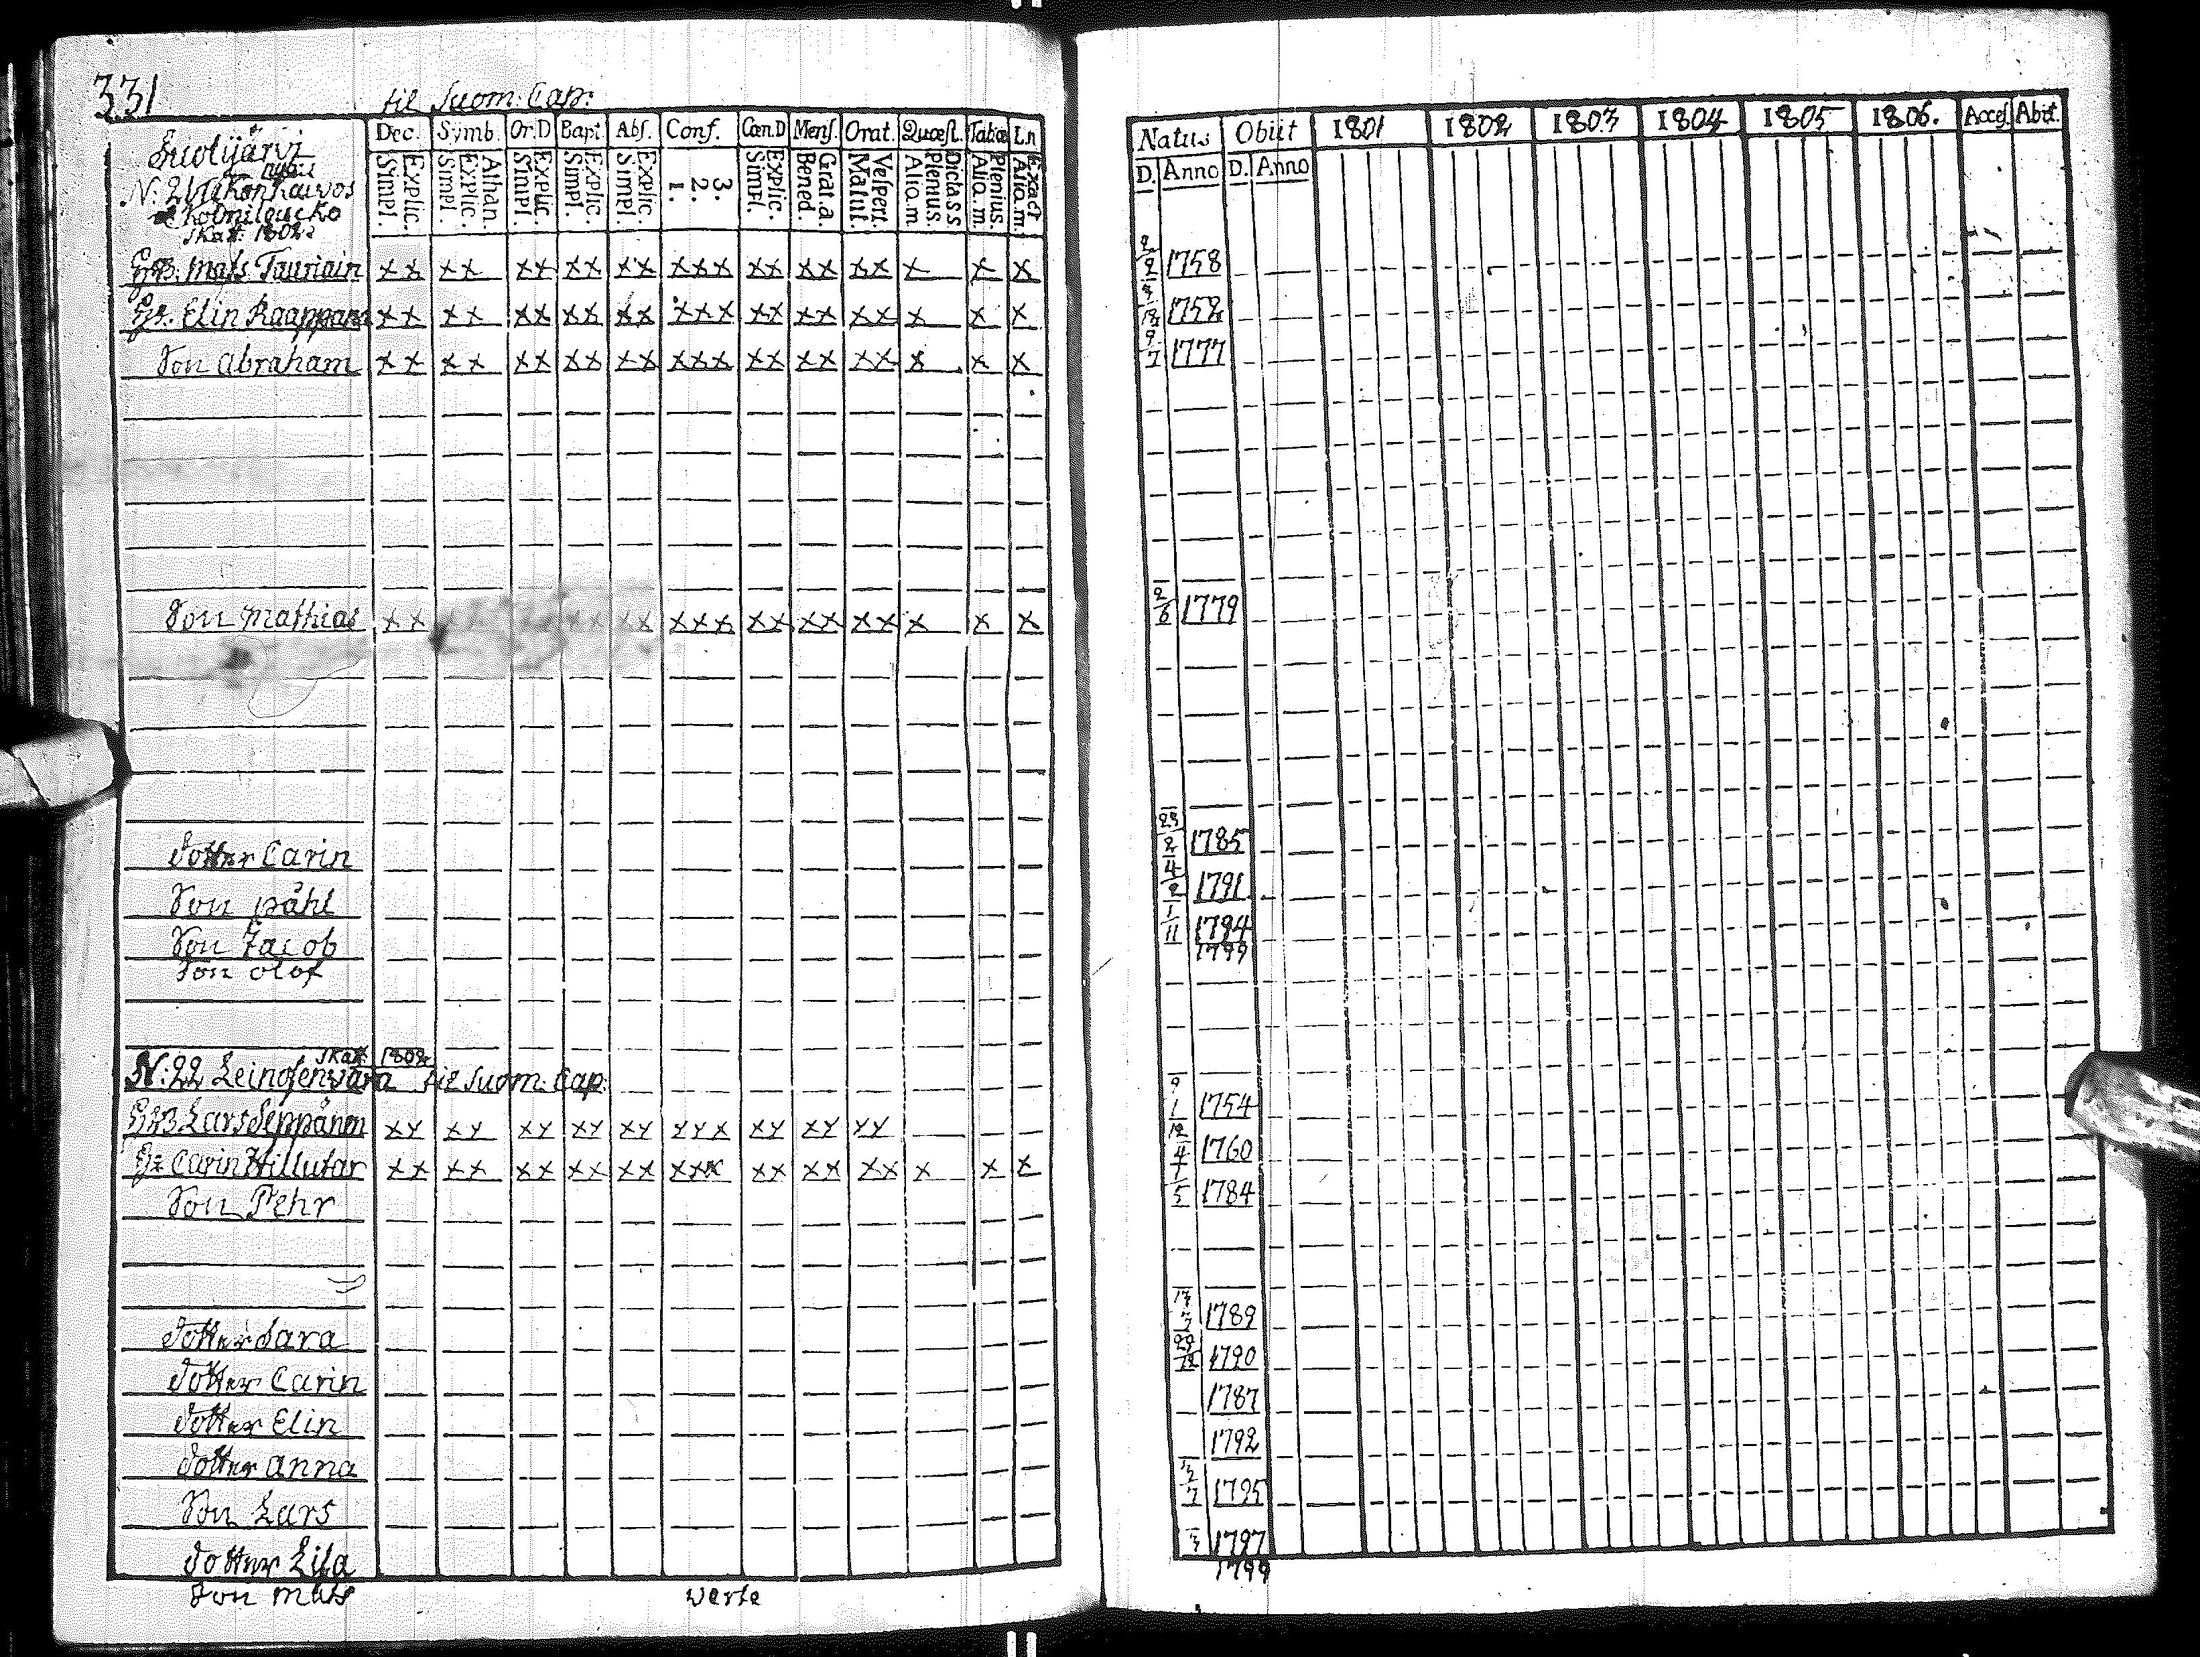 331
til Suom: Cap:
Dec. Symb. Or.D Bapt. Abs. Conf. Cœn.D Mens. Orat. Quæst. Tabæ Ln
Simpl. Explic. Simpl. Explic. Athan. Simpl. Explic. Simpl. Explic. Simpl. Explic. 1. 2. 3. Simpl. Explic. Bened. Grat.a. Matut. Vespert. Alio.m. Plenius. Dicta.s.s. Alio.m. Plenius. Alio.m. Exact
nyb:
Kolmiloucko
Skatt: 1802
Mats Tauriain xx xx xx xx xx xxx xx xx xx x x x
Elin Kaappan xx xx xx xx xx xxx xx xx xx x x x
Son Abraham xx xx xx xx xx xxx xx xx xx x x x
Son Mathias xx xx xx xx xx xxx xx xx xx x x x
Dotter Carin
Son påhl
Son Jacob
Son olof
Skatt 1802
N:22 til Suom: Cap:
Lars Seppänen xx xx xx xx xx xxx xx xx xx
Carin Hillutar xx xx xx xx xx xxx xx xx xx x x x
Son Pehr
Dotter Sara
Dotter Carin
Dotter Elin
Dotter anna
Son Lars
Dotter Lisa
Son Mats
Verte
Natus Obiit 1801 1802 1803 1804 1805 1806. Acces. Abit.
D. Anno D. Anno
1758
1777
2/6 1779
23/2 1785
4/2 1791
1/11 1794
1799
9/1 1754
12/4 1760
1/5 1784
1789
29/12 1790
1787
1792
1795
1797
1799